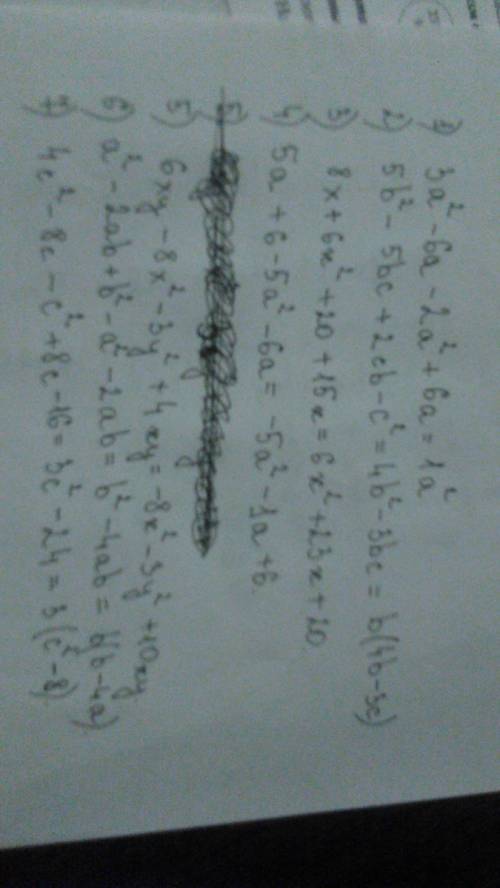 1) 3a² - 6a - 2a² + 6a = 1a²
2) 5b² - 5bc + 2cb - c² = 4b² - 3bc = b(4b - 3c)
3) 8x + 6x² + 20 + 15x = 6x² + 23x + 20
4) 5a + 6 - 5a² - 6a = -5a² - 1a + 6
5)
5) 6xy - 8x² - 3y² + 4xy = -8x² - 3y² + 10xy
6) a² - 2ab + b² - a² - 2ab = b² - 4ab = b(b - 4a)
7) 4c² - 8c - c² + 8c - 16 = 3c² - 24 = 3(c² - 8)